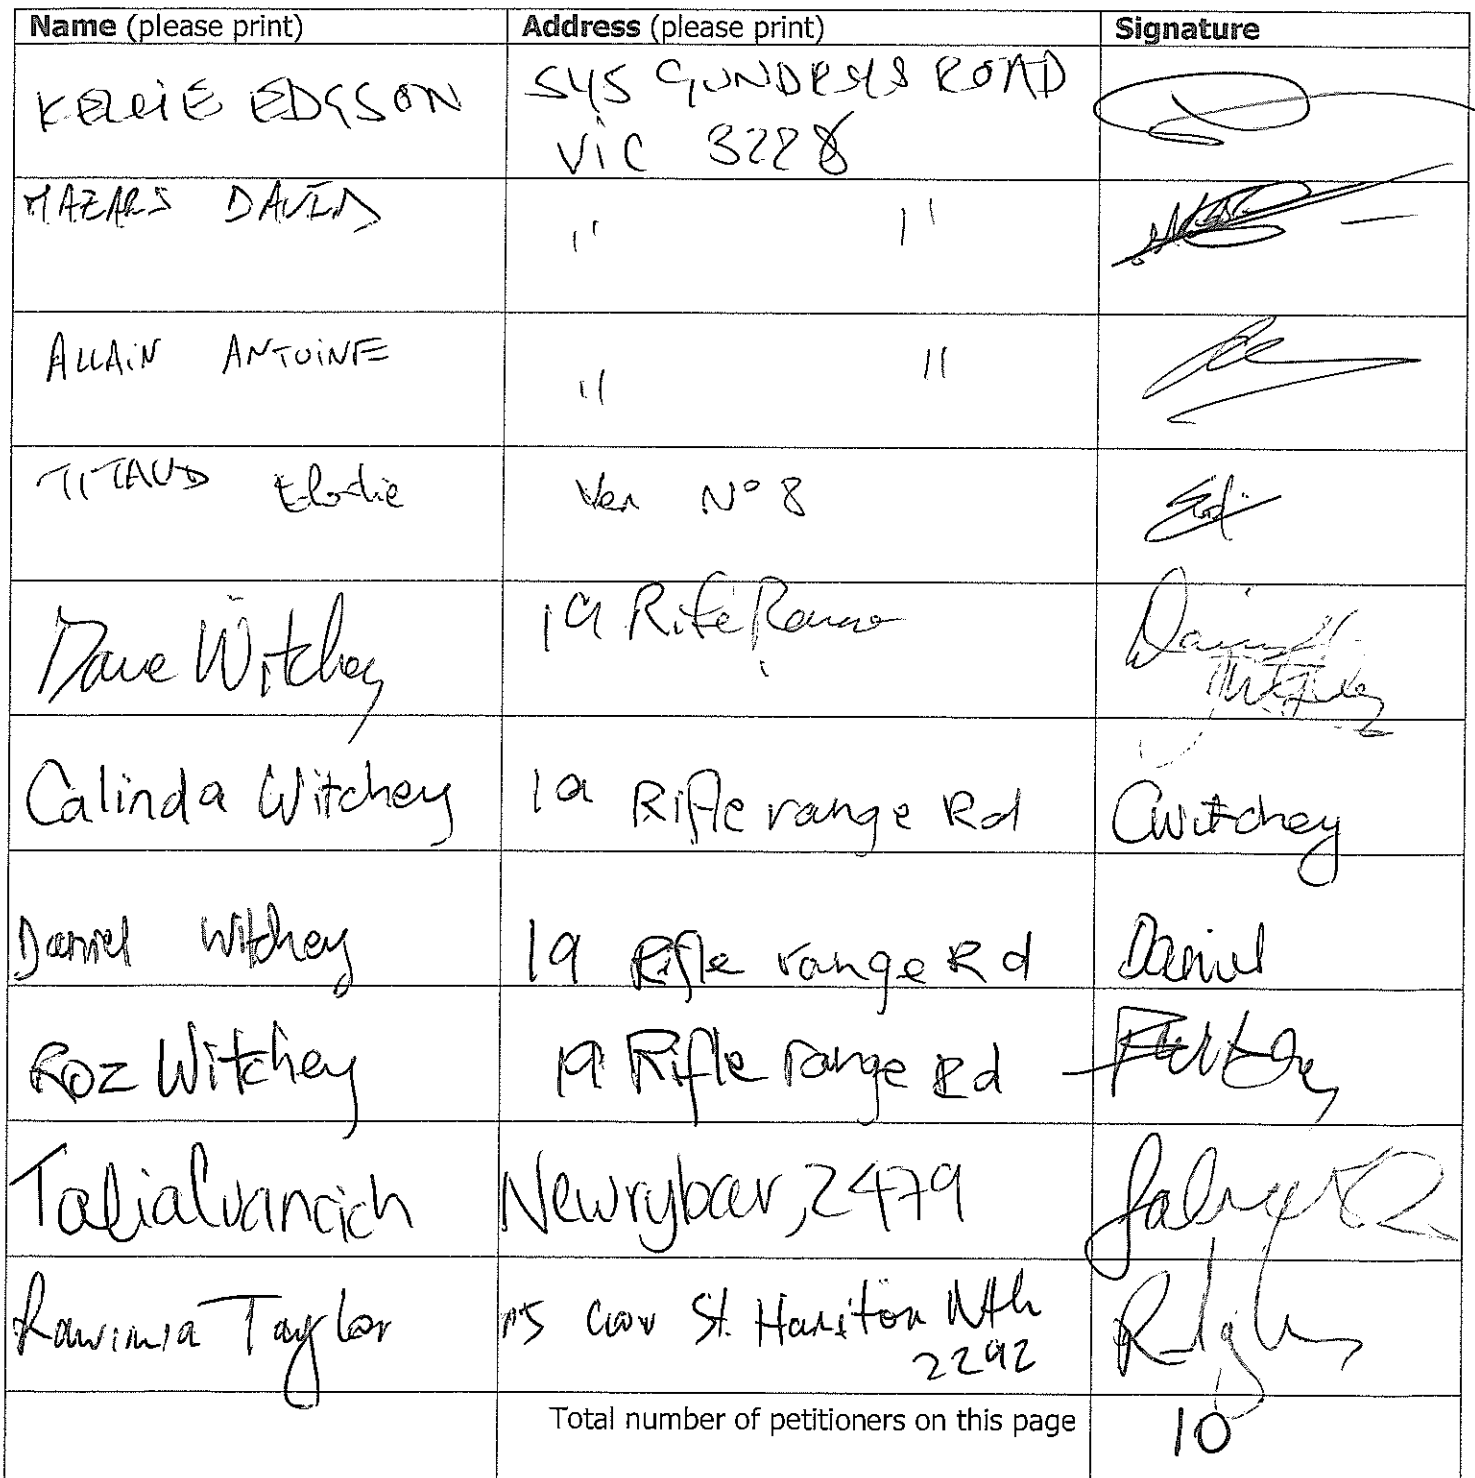 Name (please print) Address (please print) Signature
KELLIE EDGSON 545 GUNDRYS ROAD
VIC 3228
MAZARS DAVID " "
ALLAIN ANTOINE " "
TITAUD Elodie Van N°8
Dave Witchey 19 Rife Range
Calinda Witchey 19 Rifle range Rd Cwitchey
Daniel Witchey 19 Rifle range Rd Daniel
Roz Witchey 19 Rifle range Rd
Talia Ivancich Newrybar, 2479
Taylor St. Hamilton Nth
2292
Total number of petitioners on this page 10